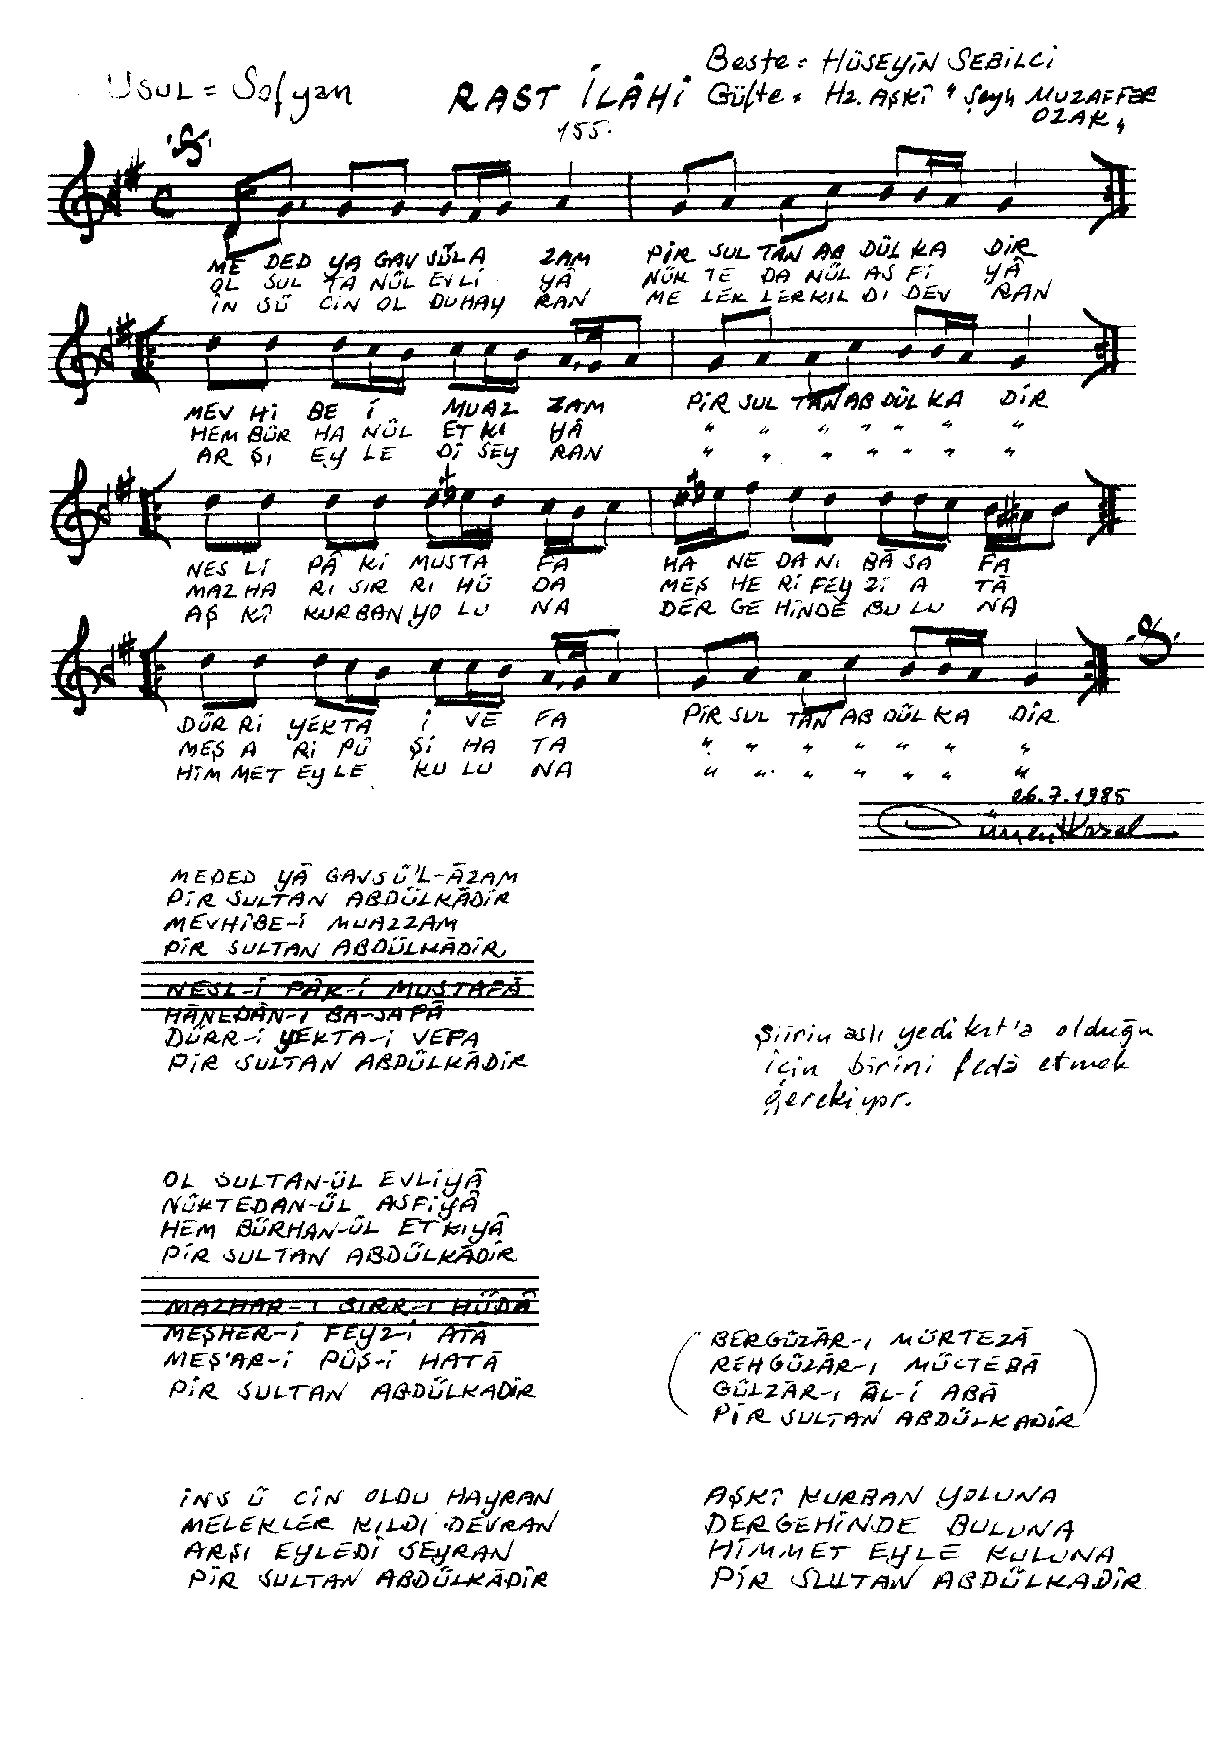 Usul = Sofyan
RAST İLÂHİ
155.
Beste = HÜSEYİN SEBİLCİ
Güfte = Hz. AŞKÎ "Şeyh MUZAFFER
OZAK"
ME DED YA GAV SÜL A ZAM PİR SUL TAN AB DÜL KA DİR
OL SUL TA NÜL EV Lİ YÂ NÜK TE DA NÜL AS Fİ YÂ
İN SÜ CİN OL DU HAY RAN ME LEK LER KIL DI DEV RAN
MEV Hİ BE İ MUAZ ZAM PİR SUL TAN AB DÜL KA DİR
HEM BÜR HA NÜL ET KI YÂ " " " " " " "
AR ŞI EY LE Dİ SEY RAN " " " " " " "
NES Lİ PÂ Kİ MUSTA FA HA NE DA NI BÂ SA FA
MAZ HA RI SIR RI HÜ DA MEŞ HE Rİ FEY Zİ A TÂ
AŞ KÎ KUR BAN YO LU NA DER GE HİNDE BU LU NA
DÜR Rİ YEKTÂ İ VE FA PİR SUL TAN AB DÜL KA DİR
MEŞ A Rİ PÛ Şİ HA TA " " " " " " "
HİM MET EY LE KU LU NA " " " " " " "
26.7.1985
MEDED YÂ GAVSÜ'L-ÂZAM
PİR SULTAN ABDÜLKÂDİR
MEVHİBE-İ MUAZZAM
PİR SULTAN ABDÜLKÂDİR
NESL-İ PÂK-İ MUSTAFÂ
HÂNEDÂN-I BA-SAFÂ
DÜRR-İ YEKTA-İ VEFA
PİR SULTAN ABDÜLKÂDİR
Şiirin aslı yedi kıt'a olduğu
için birini fedâ etmek
gerekiyor.
OL SULTAN-ÜL EVLİYÂ
NÜKTEDAN-ÜL ASFİYÂ
HEM BÜRHAN-ÜL ETKIYÂ
PİR SULTAN ABDÜLKÂDİR
MAZHAR-I SIRR-I HÜDÂ
MEŞHER-İ FEYZ-İ ATÂ
MEŞ'AR-İ PÛŞ-İ HATÂ
PİR SULTAN ABDÜLKADİR
BERGÜZÂR-I MÜRTEZÂ
REHGÜZÂR-I MÜCTEBÂ
GÜLZÂR-I ÂL-İ ABÂ
PİR SULTAN ABDÜLKADİR
İNS Ü CİN OLDU HAYRAN
MELEKLER KILDI DEVRAN
ARŞI EYLEDİ SEYRAN
PİR SULTAN ABDÜLKÂDİR
AŞKÎ KURBAN YOLUNA
DERGEHİNDE BULUNA
HİMMET EYLE KULUNA
PİR SULTAN ABDÜLKADİR